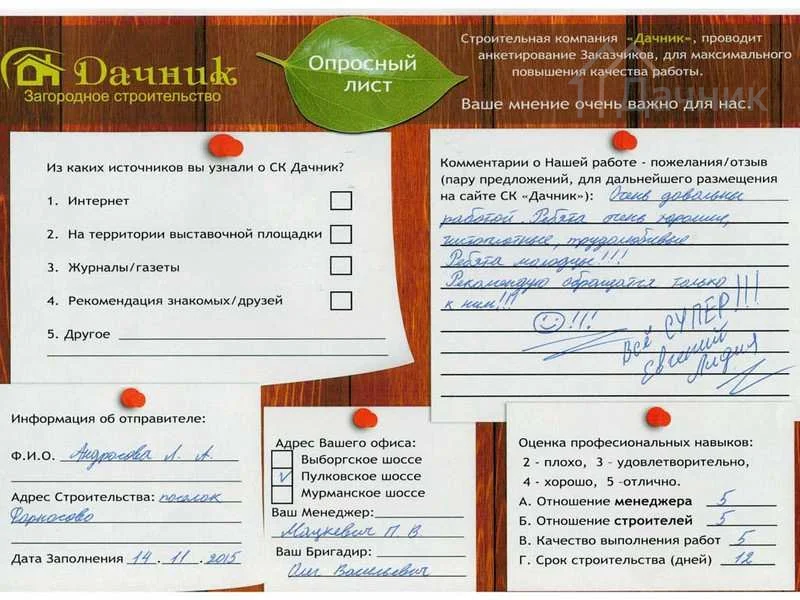 Дачник
Загородное строительство
Опросный
лист
Строительная компания «Дачник», проводит
анкетирование Заказчиков, для максимального
повышения качества работы.
Ваше мнение очень важно для нас.
Дачник
Из каких источников вы узнали о СК Дачник?
1. Интернет
2. На территории выставочной площадки
3. Журналы/газеты
4. Рекомендация знакомых/друзей
5. Другое
Комментарии о Нашей работе - пожелания/отзыв
(пару предложений, для дальнейшего размещения
на сайте СК «Дачник»): Очень довольны
работой. Ребята очень хорошие,
чистоплотные, трудолюбивые
Ребята молодцы!!!
Рекомендую обращатся только
к ним!!!
!!!
Всё СУПЕР!!!
Евгений
Лидия
Информация об отправителе:
Ф.И.О. Андросова Л. А.
Адрес Строительства: поселок
Форносово
Дата Заполнения 14 . 11 . 2015
Адрес Вашего офиса:
Выборгское шоссе
V Пулковское шоссе
Мурманское шоссе
Ваш Менеджер:
Мацкевич П. В.
Ваш Бригадир:
Олег Васильевич
Оценка професиональных навыков:
2 - плохо, 3 - удовлетворительно,
4 - хорошо, 5 -отлично.
А. Отношение менеджера 5
Б. Отношение строителей 5
В. Качество выполнения работ 5
Г. Срок строительства (дней) 12